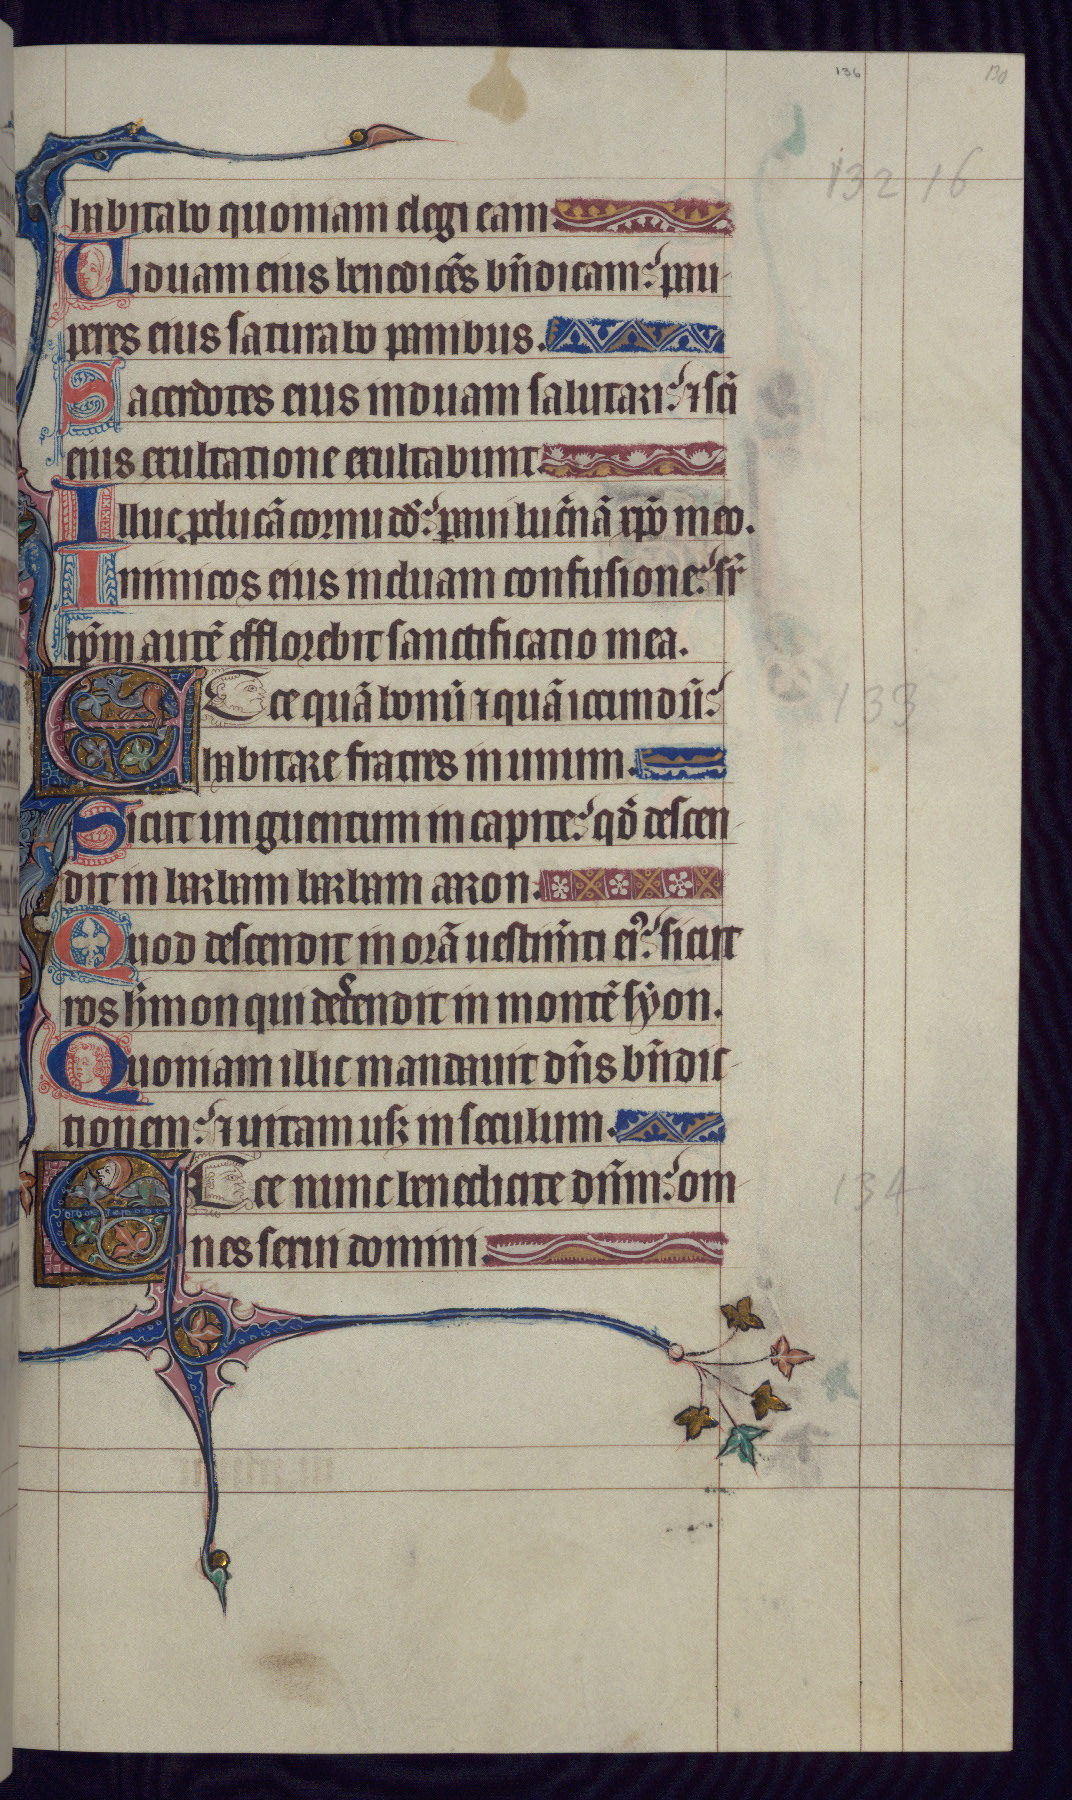 136
130
132 16
habitabo quoniam elegi eam
Uiduam eius benedicēs bn̄dicam: pau
peres eius saturabo panibus.
Sacerdotes eius induam salutari: ⁊ sc̄i
eius exultatione exultabunt.
Illuc ꝓducā cornu dd̄: paui luc̄nā xp̄o meo.
Inimicos eius induam confusione: sr̄
ip̄m autē efflorebit sanctificatio mea.
133
Ecce quā bonū ⁊ quā iocundū:
habitare fratres in unum.
Sicut unguentum in capite: qd̄ descen
dit in barbam barbam aron.
Quod descendit in orā uestim̄ti eiꝰ: sicut
ros h̄mon qui descendit in montē syon.
Quoniam illic mandauit dn̄s bn̄dic
tionem: ⁊ uitam usꝫ in seculum.
134
Ecce nunc benedicite dn̄m: om
nes serui domini.